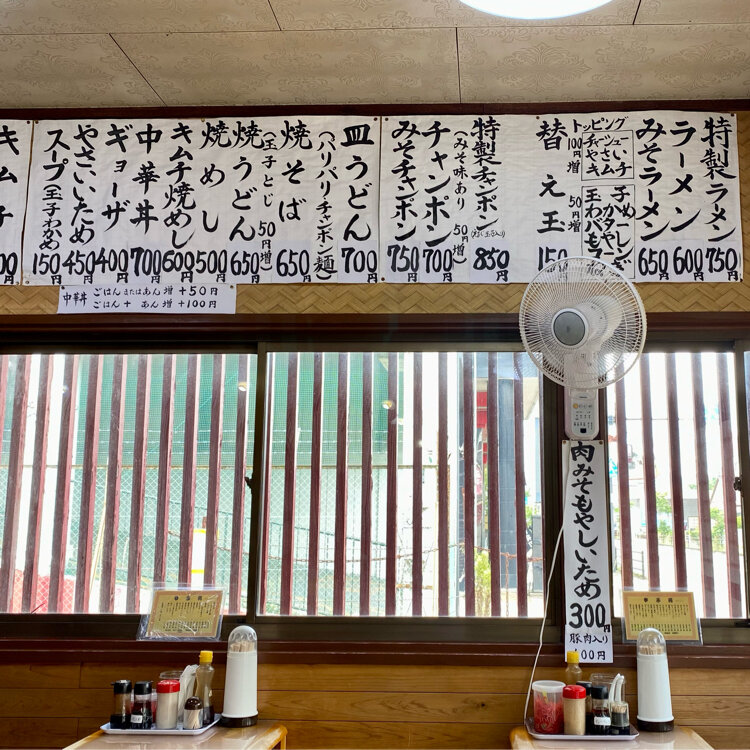 特製ラーメン 750円
ラーメン 600円
みそラーメン 650円
トッピング
100円増
チャーシュー
やさい
キムチ
50円増
玉子
わかめ
バター
もやし
替え玉 150
特製チャンポン 850円
(みそ味あり 50円増)
チャンポン 700円
みそチャンポン 750円
皿うどん 700円
(パリパリチャンポン麺)
焼そば 650円
焼うどん 650円
(玉子とじ 50円増)
焼めし 500円
キムチ焼めし 600円
中華丼 700円
ギョーザ 400円
やさいいため 450円
スープ(玉子わかめ) 150円
キムチ
00円
中華丼 ごはんまたはあん増+50円
ごはん+あん増+100円
肉みそもやしいため 300円
豚肉入り